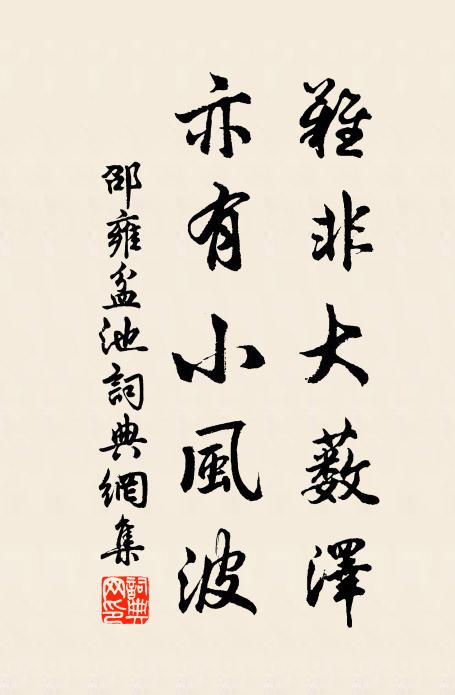 雖非大藪澤
亦有小風波
邵雍盆池詞典網集
詞典网印